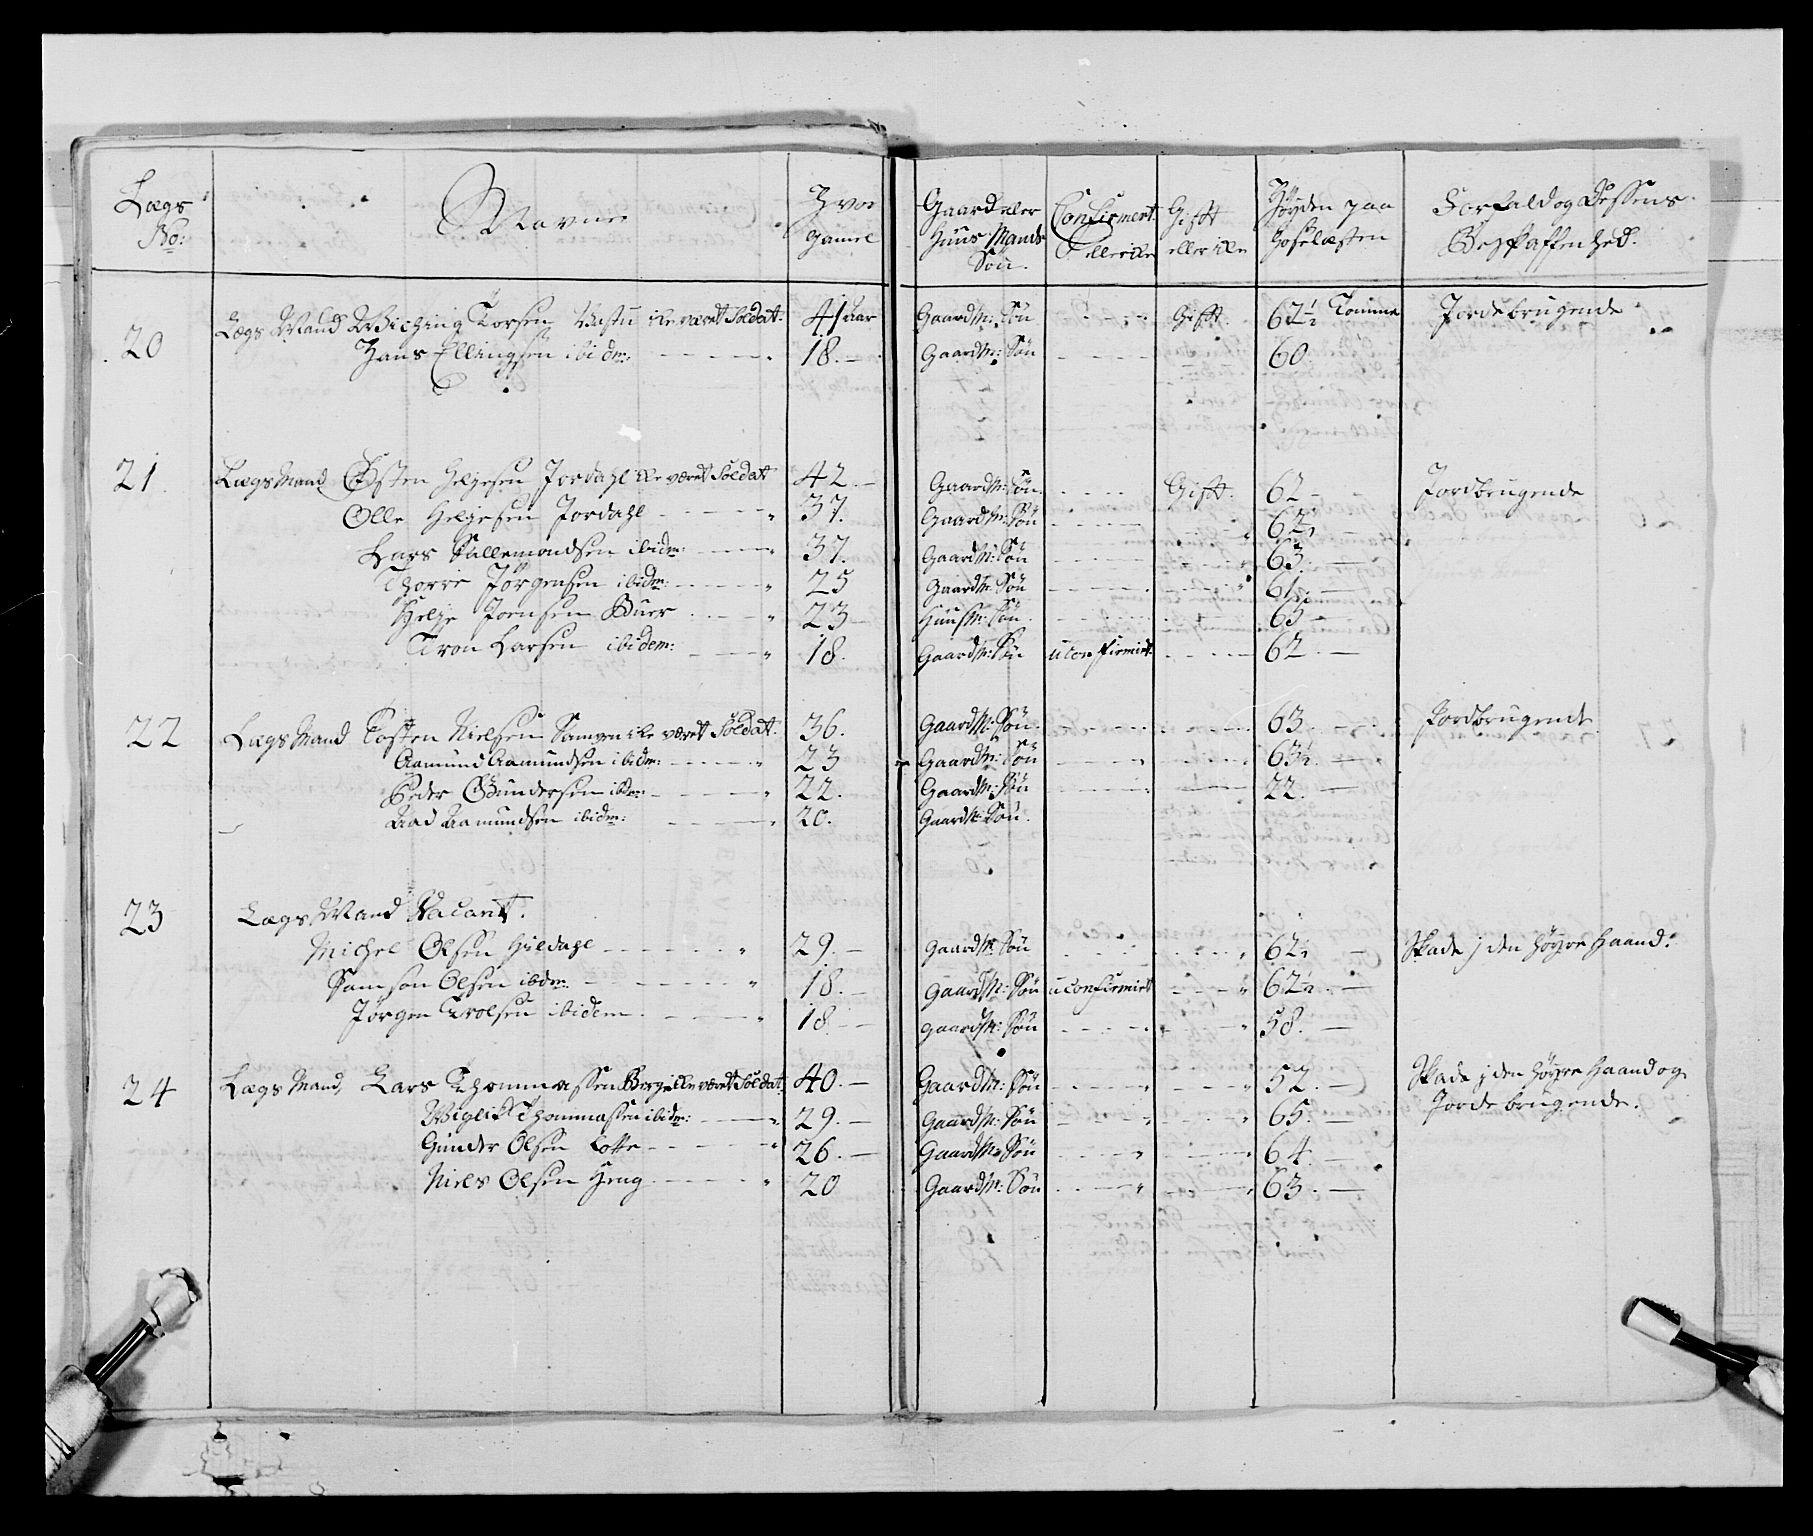 Lægs No: Navne Hvor gamel Gaard eller Huus Mands Søn. Confirmert eller ikke Gift eller ikke Høyden paa Hoselæsten Forfald og Dessens Beskaffenhed.
20 Lægs Mand Wiching Torsen ikke været Soldat. 41 aar Gaard M: Søn Gift 62½ Tomme Jordebrugende
Hans Ellingsen ibidm: 18. Gaard M: Søn 60
21. Lægs Mand Østen Helgesen Jordahl ikke været Soldat 42. Gaard M: Søn. Gift. 62 Jordbrugende
Olle Helgesen Jordahl 37. Gaard M: Søn 62½
Lars Sallemondsen ibidm: 37. Gaard M: Søn 63
Thorre Jörgensen ibidm: 25 Gaard M: Søn 61½
Helge Joensen Buer 23 Huus M: Søn. 65
Tron Larsen ibidem: 18. Gaard M: Søn uconfirmirt. 62
22 Lægs Mand Tosten Nielsen ikke været Soldat. 36. Gaard M: Søn. 63 Jordbrugende
Aamund Aamundsen ibidm: 23 Gaard M: Søn 63½
Peder Gundersen ibdm: 22. Gaard M: Søn 22.
Aad Aamundsen ibidm: 20. Gaard M: Søn.
23 Lægs Mand Vacant.
Michel Olsen Hildahl 29. Gaard M: Søn 62½ Skade j den høyre Haand.
Samson Olsen ibdm: 18. Gaard M: Søn uconfirmirt 62½
Jørgen Trolsen ibidem 18. Gaard M: Søn 58.
24 Lægs Mand, Lars Thommassen Berge ikke været Soldat. 40. Gaard M: Søn 52. Skade j den høyre Haand og
Wiglik Thommassen ibidm: 29. Gaard M: Søn 65. Jorde brugende.
Gunder Olsen Lotte 26. Gaard M: Søn 64.
Niels Olsen Heng 20 Gaard M: Søn 63.